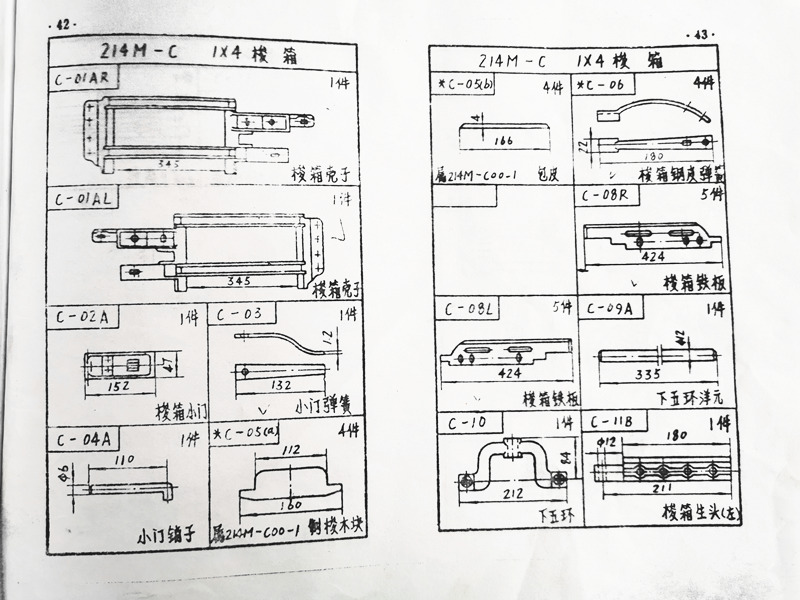 ·42·
214M-C 1X4 梭箱
C-01AR 1件
345
梭箱壳子
C-01AL 1件
345
梭箱壳子
C-02A 1件
47
152
梭箱小门
C-03 1件
12
132
小门弹簧
C-04A 1件
110
φ6
小门销子
*C-05(a) 4件
112
160
属214M-C00-1 侧梭木块
·43·
214M-C 1X4 梭箱
*C-05(b) 4件
4
166
属214M-C00-1 包皮
*C-06 4件
22
180
梭箱钢皮弹簧
C-08R 5件
424
梭箱铁板
C-08L 5件
424
梭箱铁板
C-09A 1件
φ12
335
下五环洋元
C-10 1件
84
212
下五环
C-11B 1件
φ12 180
211
梭箱生头(左)